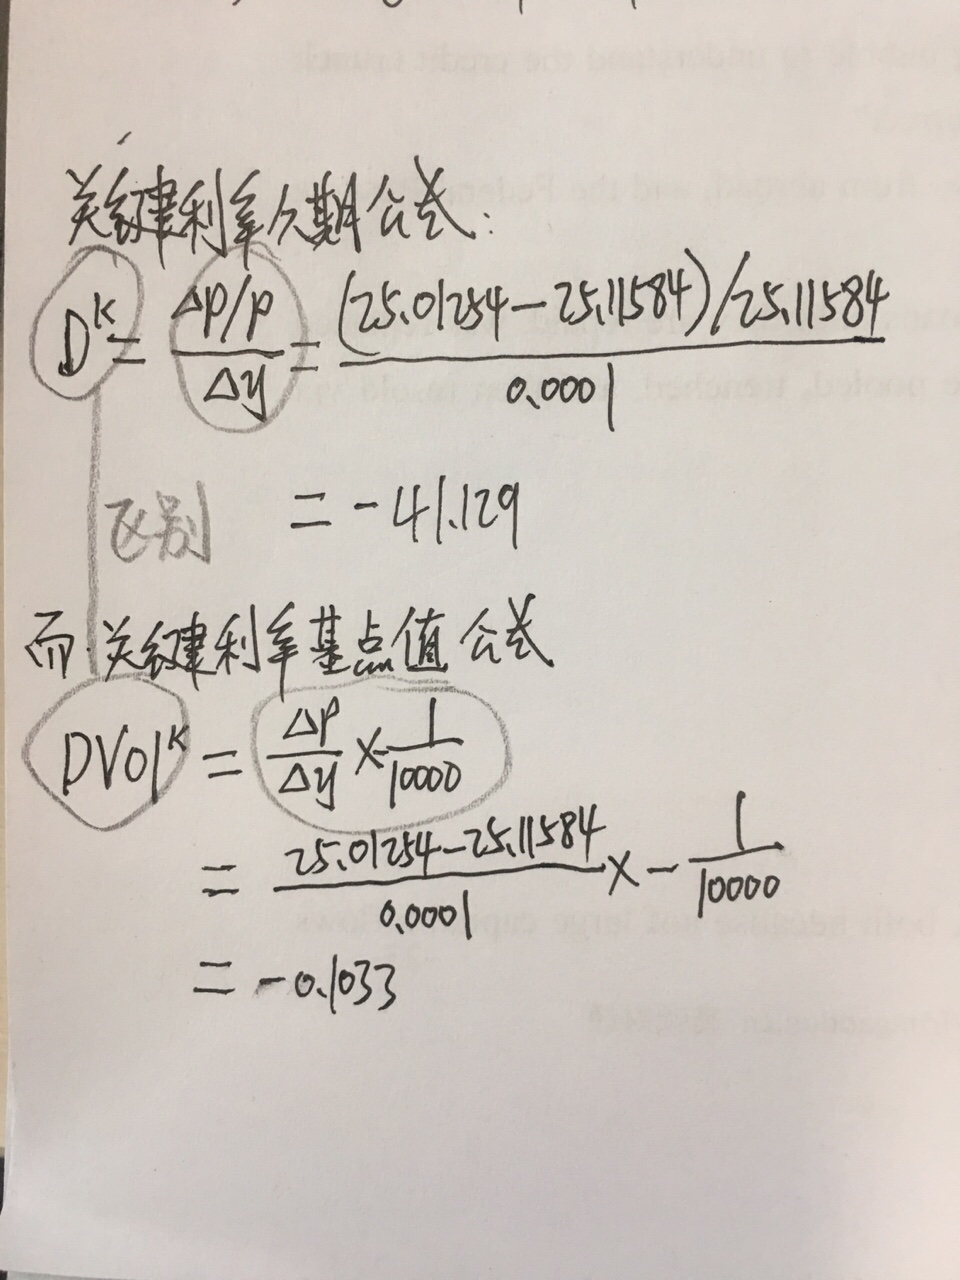 关键利率久期公式:
D^K = (Δp/p)/Δy = ((25.01254-25.11584)/25.11584)/0.0001
区别 = -41.129
而关键利率基点值公式
DV01^K = Δp/Δy × 1/10000
= (25.01254-25.11584)/0.0001 × - 1/10000
= -0.1033